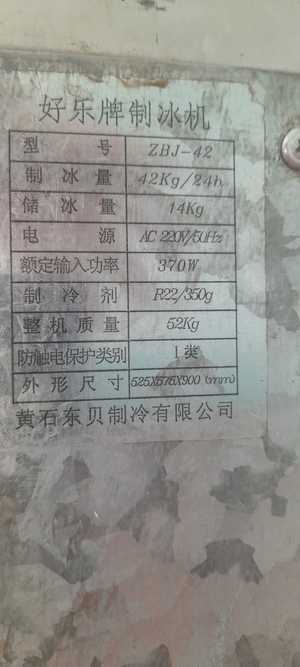 好乐牌制冰机
型号 ZBJ-42
制冰量 42Kg/24h
储冰量 14Kg
电源 AC 220V/50Hz
额定输入功率 370W
制冷剂 R22/350g
整机质量 52Kg
防触电保护类别 I类
外形尺寸 525X576X900 (mm)
黄石东贝制冷有限公司